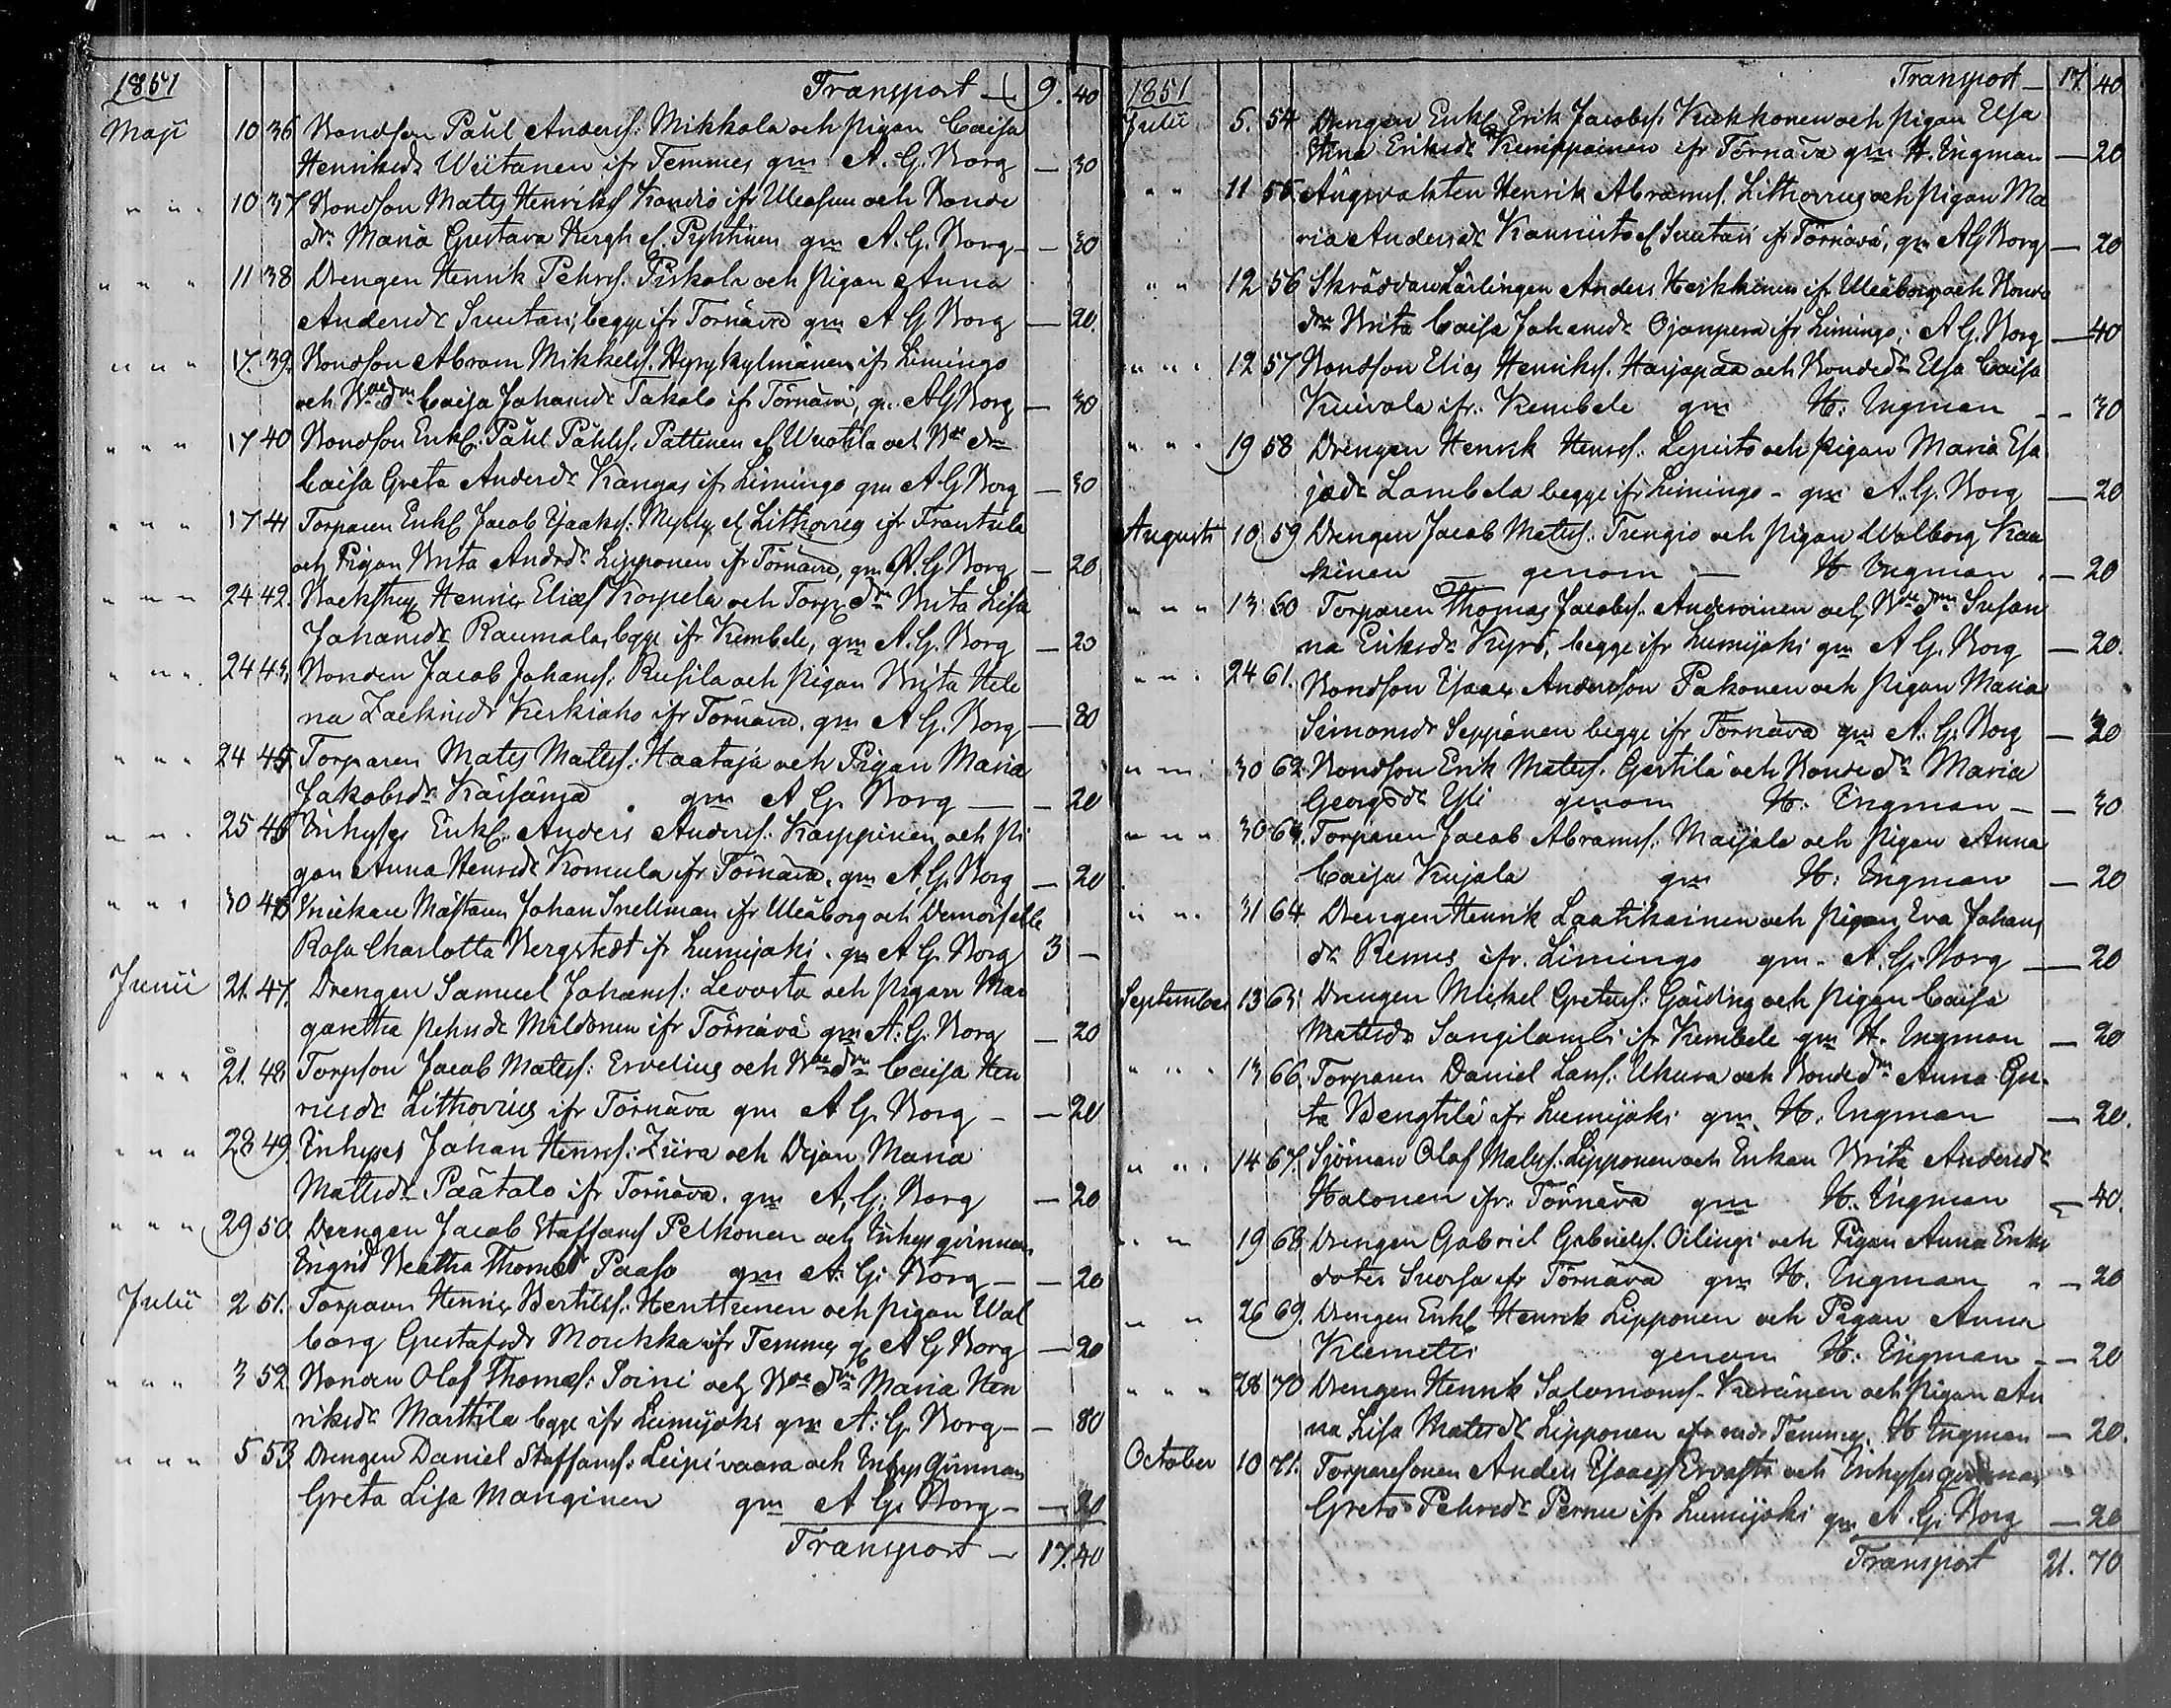 1851 Transport — 9. 40
Maji 10 36 Bondson Påhl Andersf: Mikkola och pigan Caisa
Henriksdr Wiitanen ifr Temmes gm A. G. Borg — 30
" " 10 37 Bondson Matts Henriksf Kondio ifr Uleosuu och Bonde
dr Maria Gustava Bergh el. Pyhtinen gm A. G. Borg — 30
" " " 11 38 Drengen Henrik Pehrsf. Piskola och pigan Anna
Andersdr Suutari, begge ifr Tornäva gm A G Borg — 20.
" " " 17. 39. Bondson Abram Mikkelsf. Hyrykylmänen ifr Limingo
och Bde dm Caisa Johansdr Takalo ifr Törnävä, g. A G Borg — 30
" " " 17 40 Bondson Enkl. Påhl Påhlsf. Pattinen el Wuotila och Bde dm
Caisa Greta Andersdr Kangas ifr Limingo gm A G Borg — 30
" " " 17 41 Torparen Enkl Jacob Isaaksf: Mylly el Lithovieg ifr Frantsila
och Pigan Brita Andrsdr Lipponen ifr Törnävä, gm A. G. Borg — 20
" " " 24 42. Henric Eliasf Korpela och Torp dm Brita Lisa
Johansdr Raumala, begge ifr Kembele, gm A. G. Borg — 20
" " " 24 43, Bonden Jacob Johansf: Rusila och pigan Brita Hele
na Zackrisdr Keskiaho ifr Tornävä. gm A G. Borg — 80
" " " 24 44. Torparen Matts Mattsf: Haataja och Pigan Maria
Jakobsdr Käisänjä gm A G. Borg — 20
" " 25 45 Inhyses Enkl. Anders Andersf. Karppinen och pi
gan Anna Henrsdr Komula ifr Törnävä. gm A. G. Borg — 20
" " " 30 46 Snickare Mästaren Johan Snellman ifr Uleåborg och Demoiselle
Rosa Charlotta Bergstedt ifr Lumijoki. gm A G. Borg 3 —
Junii 21. 47. Drengen Samuel Johansf: Levosta och pigan Mar
garetha pehrsdr Mildonen ifr Törnävä gm A. G. Borg — 20
" " " 21. 48 Torpson Jacob Mattsf: Ervelius och Bde dm Caisa Hen
ricsdr Lithovius ifr Törnävä gm A G. Borg — 20
" " " 28 49. Inhyses Johan Henrsf: Ziira och Pigan Maria
Mattsdr Päätalo ifr Tornävä. gm A. G. Borg — 20
" " " 29 50. Drengen Jacob Staffansf Pelkonen och Inhys qvinnan
Engrid Beatha Thomasdr Paaso gm A. G. Borg — 20
Julii 2 51. Torparen Henric Bertilsf: Henttunen och pigan Wal
borg Gustafsdr Moukka ifr Temmes g A G Borg — 20
" " " 3 52 Bonden Olof Thomasf: Soini och Bde dm Maria Hen
riksdr Marttila begge ifr Lumijoki gm A. G. Borg — 80
" " " 5 53. Drengen Daniel Staffansf: Leipivaara och Inhys Qvinnan
Greta Lisa Manginen gm A G. Borg — 20
Transport — 17. 40
1851 Transport — 17. 40
Julii 5. 54 Drengen Enkl Erik Jacobsf. Kukkonen och pigan Elsa
Stina Eriksdr Kemppainen ifr Törnävä gm H. Engman — 20
" " 11 55 Henrik Abramsf. Lithovius och pigan Ma
ria Andersdr Kauristo el Suutari ifr Törnävä, gm A G Borg — 20
" " 12 56 Skräddare Lärlingen Anders Heikkinen ifr Uleåborg och Bonde
dm Brita Caisa Johansdr Ojanperä ifr Limingo; A G. Borg — 40
" " " 12 57 Bondson Elias Henriksf. Harjapää och Bondedr Elsa Caisa
Kuivala ifr. Kembele gm H: Engman — 30
" " " 19 58 Drengen Henrik Henrsf. Lepisto och pigan Maria Esa
jædr Lambela begge ifr Limingo - gm A. G. Borg — 20
Augusti 10 59 Drengen Jacob Mattsf. Trengio och pigan Walborg Kau
kinen — genom — H Engman — 20
" " " 13 60 Torparen Thomas Jacobsf. Anderoinen och Bde dm Susan
na Eriksdr Kyrö, begge ifr Lumijoki gm A G. Borg — 20.
" " " 24 61. Bondson Isaac Andersson Pakonen och pigan Maria
Simonsdr Seppänen begge ifr Törnävä gm A. G. Borg — 20
" " 30 62 Bondson Erik Mattsf. Gertilä och Bonde dr Maria
Georgsdr Yli genom H: Engman — 30
" " " 30 63. Torparen Jacob Abramsf. Maijala och pigan Anna
Caisa Kujala gm H: Engman — 20
" " 31 64 Drengen Henrik Laatikainen och pigan Eva Johans
dr Remes ifr. Limingo gm A. G. Borg — 20
September 13 65: Drengen Mickel Gretasf: Gåiding och pigan Caisa
Mattsdr Sangilambi ifr Kembele gm H. Engman — 20
" " " 13 66. Torparen Daniel Larsf. Ukura och Bondedm Anna Gre-
ta Bengtilä ifr Lumijoki gm. H. Engman — 20.
" " " 14 67. Sjöman Olof Matsf. Lipponen och Enkan Brita Andersdr
Halonen ifr. Törnävä gm H. Engman — 40.
" " 19 68. Drengen Gabriel Gabrielsf. Oilingi och Pigan Anna Eriks
doter Suorsa ifr Törnävä gm H. Engman — 20
" " 26 69. Drengen Enkl Henrik Lipponen och Pigan Anna
Klemetti genom H: Engman — 20
" " " 28 70 Drengen Henrik Salomonsf. Keränen och pigan An
na Lisa Mattsdr Lipponen Temmes. H Engman — 20.
October 10 71. Torparesonen Anders Isaacsf Ervasti och Inhyses qvinnan
Greta Pehrsdr Pernu ifr Lumijoki gm A. G. Borg — 20
Transport 21. 70